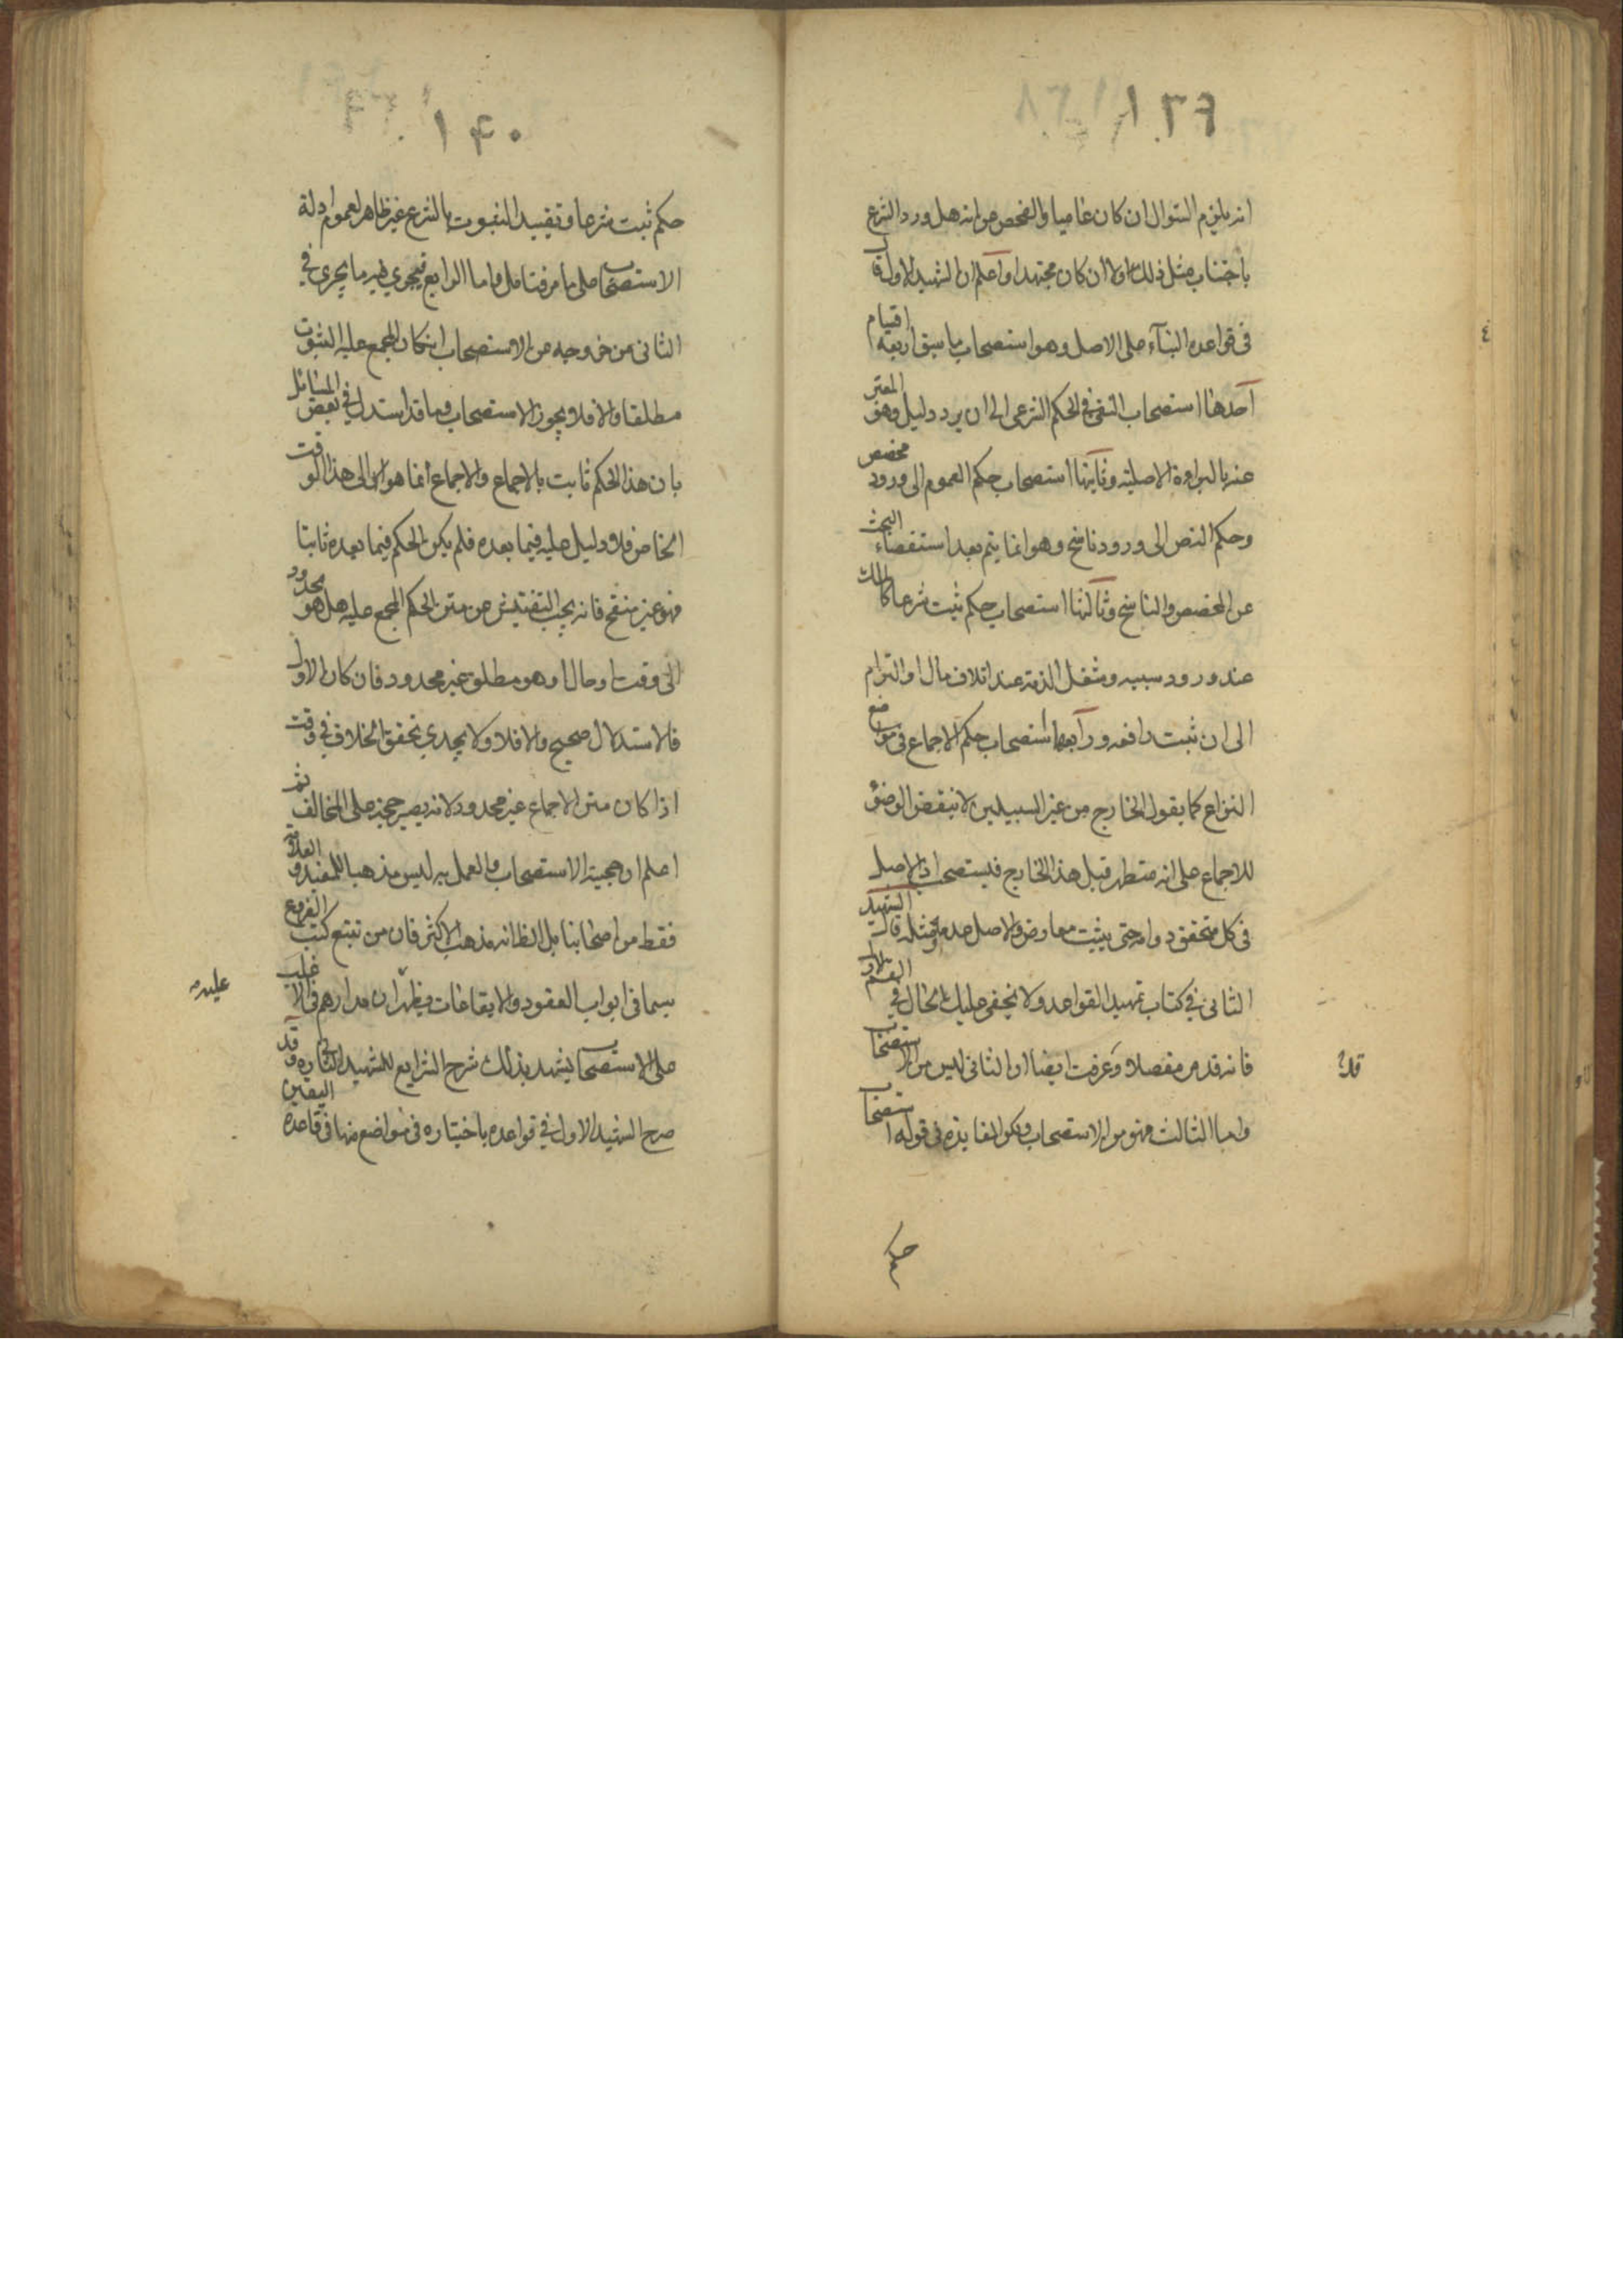 انه يلزم السؤال ان كان عاميا والفحص عن انه هل ورد الشرع
باجتناب مثل ذلك او لا ان كان مجتهدا واعلم ان الشهيد الاول قال
فى قواعده البناء على الاصل وهو استصحاب ما سبق اربعة اقسام
احدها استصحاب النفى فى الحكم الشرعى الى ان يرد دليل وهو المعبر
عنه بالبراءة الاصلية وثانيها استصحاب حكم العموم الى ورود مخصص
وحكم النص الى ورود ناسخ وهو انما يتم بعد استقصاء البحث
عن المخصص والناسخ وثالثها استصحاب حكم ثبت شرعا كالملك
عند ورود سببه وشغل الذمة عند اتلاف مال او التزام
الى ان ثبت رافعه ورابعها استصحاب حكم الاجماع فى موضع
النزاع كما يقول الخارج من غير السبيلين لا ينقض الوضوء
للاجماع على انه متطهر قبل هذا الخارج فيستصحب اذ الاصل
فى كل متحقق دوامه حتى يثبت معارض والاصل عدمه وبمثله قال الشهيد
الثانى فى كتاب تمهيد القواعد ولا يخفى عليك الحال فى القسم الاول
فانه قد مر مفصلا وعرفت ايضا ان الثانى ليس من الاستصحاب
واما الثالث فهو من الاستصحاب ولكن الفايدة فى قوله استصحاب
حكم
١٤٠
حكم ثبت شرعا وتقييد الثبوت بالشرع غير ظاهر لعموم ادلة
الاستصحاب على ما مر فتامل واما الرابع فيجري فيه ما يجرى في
الثانى من خروجه عن الاستصحاب ان كان المجمع عليه الثبوت
مطلقا والا فلا ويجوز الاستصحاب وما قد استدل في بعض المسائل
بان هذا الحكم ثابت بالاجماع والاجماع انما هو الى هذا الوقت
الخاص فلا دليل عليه فيما بعده فلم يكن الحكم فيما بعده ثابتا
فهو غير منقح فانه يجب التفتيش عن متن الحكم المجمع عليه هل هو محدود
الى وقت او حال او هو مطلق غير محدود فان كان الاول
فالاستدلال صحيح والا فلا ولا يجدي تحقق الخلاف في وقت
اذا كان متن الاجماع غير محدود لانه يصير حجة على المخالف ثم
اعلم ان حجية الاستصحاب والعمل به ليس مذهبا للمفيد والعلامة
فقط من اصحابنا بل الظ انه مذهب الاكثر فان من تتبع كتب الفروع
سيما فى ابواب العقود والايقاعات يظهر ان مدارهم فى الاغلب
عليه
على الاستصحاب يشهد بذلك شرح الشرايع للشهيد الثانى وقد
صرح الشهيد الاول في قواعده باختياره فى مواضع منها فى قاعدة اليقين